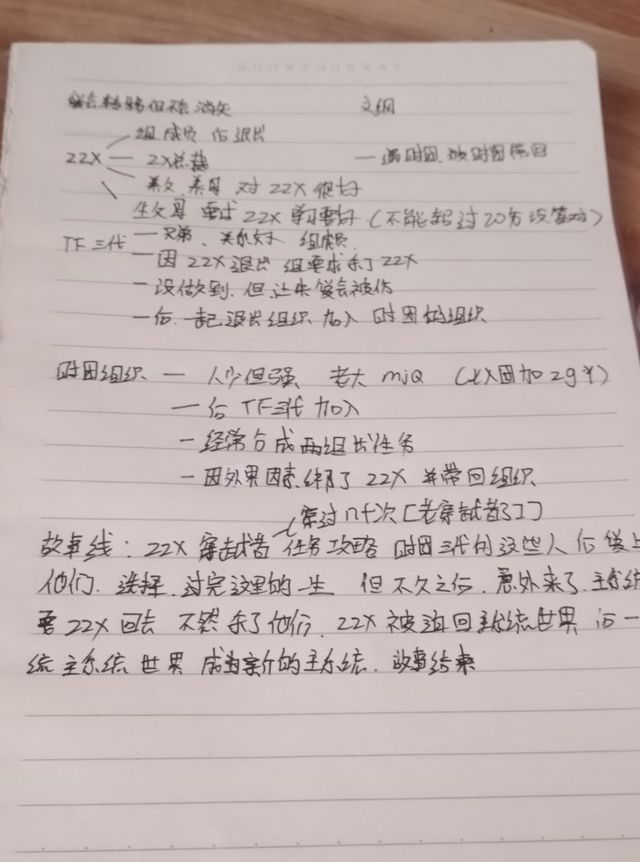 爱会转移但不会消失 文纲
组成员 后退出
22X — 2X总裁 — 遇时团.被时团带回
养父.养母 对 22X 很好
生父母 要求 22X 学习要好 (不能超过20分没管对)
TF三代 — 兄弟、关系好 组成员
— 因 22X 退出 组要求杀了 22X
— 没做到.但让失忆会被伤
— 后.一起退出组织 加入 时团的组织
时团组织 — 人少但强 老大 mjq (七人团加zg半)
— 后 TF三代 加入
— 经常分成两组出任务
— 因外界因素.绑了 22X 并带回组织
穿过几十次 [老穿越者了]
故事线: 22X 穿越者 任务攻略 时团三代的这些人 后爱上
他们.选择.过完这里的一生 但不久之后.意外来了.主系统
要 22X 回去 不然杀了他们. 22X 被迫回主系统世界 后一
统主系统世界 成为新的主系统.故事结束